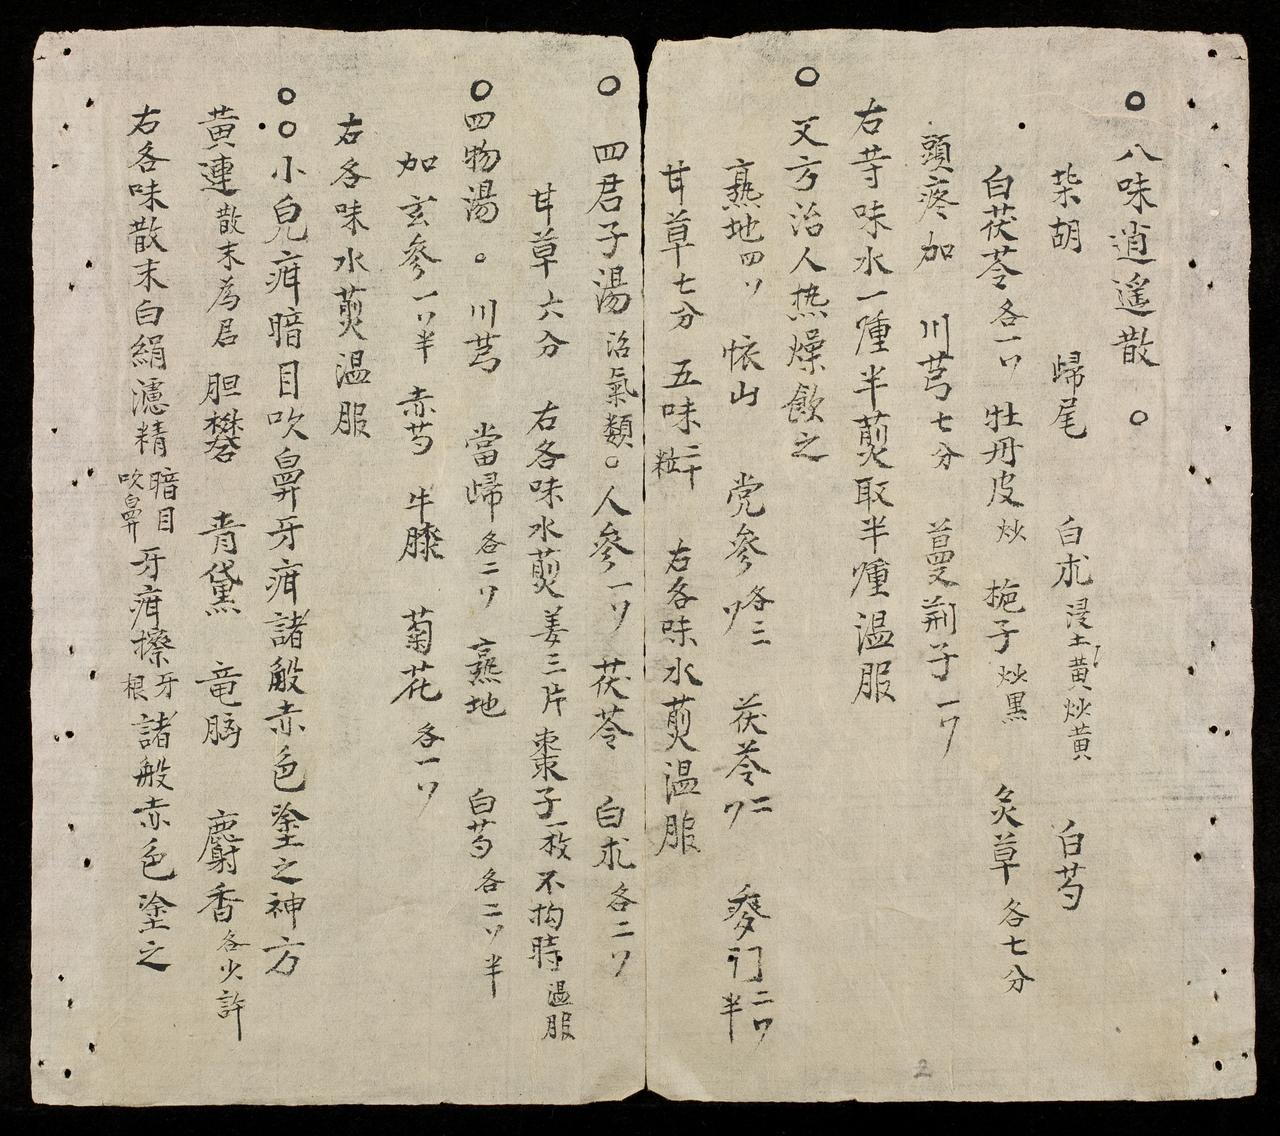 ○八味逍遥散○
柴胡 歸尾 白朮浸土黄炒黄 白芍
白茯苓各一ㄗ 牡丹皮炒 梔子炒黑 炙草各七分
頭疼加 川芎七分 蔓荆子一ㄗ
右等味水一鍾半煎取半鍾温服
○又方治人热燥飲之
熟地四ㄗ 怀山 党參各三ㄗ 茯苓二ㄗ 麥门二ㄗ半
甘草七分 五味二十粒 右各味水煎温服
○四君子湯治氣類○人參一ㄗ 茯苓 白朮各二ㄗ
甘草六分 右各味水煎姜三片棗子一枚不拘時温服
○四物湯○川芎 當歸各二ㄗ 熟地 白芍各二ㄗ半
加玄參一ㄗ半 赤芍 牛膝 菊花各一ㄗ
右各味水煎温服
○○小兒疳暗目吹鼻牙疳諸般赤色塗之神方
黄連散末為君 胆礬 青黛 竜腦 麝香各少許
右各味散末白絹濾精暗目吹鼻牙疳擦牙根諸般赤色塗之
2